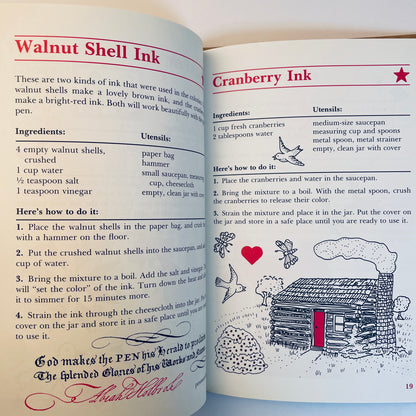 Walnut Shell Ink
These are two kinds of ink that were used in the
walnut shells make a lovely brown ink, and the
make a bright-red ink. Both will work beautifully with
pen.
Ingredients:
Utensils:
4 empty walnut shells,
crushed
1 cup water
½ teaspoon salt
1 teaspoon vinegar
paper bag
hammer
small saucepan,
cup, cheesecloth
empty, clean jar with
Here's how to do it:
1. Place the walnut shells in the paper bag, and
with a hammer on the floor.
2. Put the crushed walnut shells into the saucepan, and
cup of water.
3. Bring the mixture to a boil. Add the salt and vinegar.
will "set the color" of the ink. Turn down the heat and
it to simmer for 15 minutes more.
4. Strain the ink through the cheesecloth into the jar. Put
cover on the jar and store in a safe place until you are
to use it.
God makes the PEN his Herald to
The splendid Glories of his Works and
Cranberry Ink
Ingredients:
Utensils:
1 cup fresh cranberries
2 tablespoons water
medium-size saucepan
measuring cup and spoons
metal spoon, metal strainer
empty, clean jar with cover
Here's how to do it:
1. Place the cranberries and water in the saucepan.
2. Bring the mixture to a boil. With the metal spoon, crush
the cranberries to release their color.
3. Strain the mixture and place it in the jar. Put the cover
on the jar and store in a safe place until you are ready to use it.
19